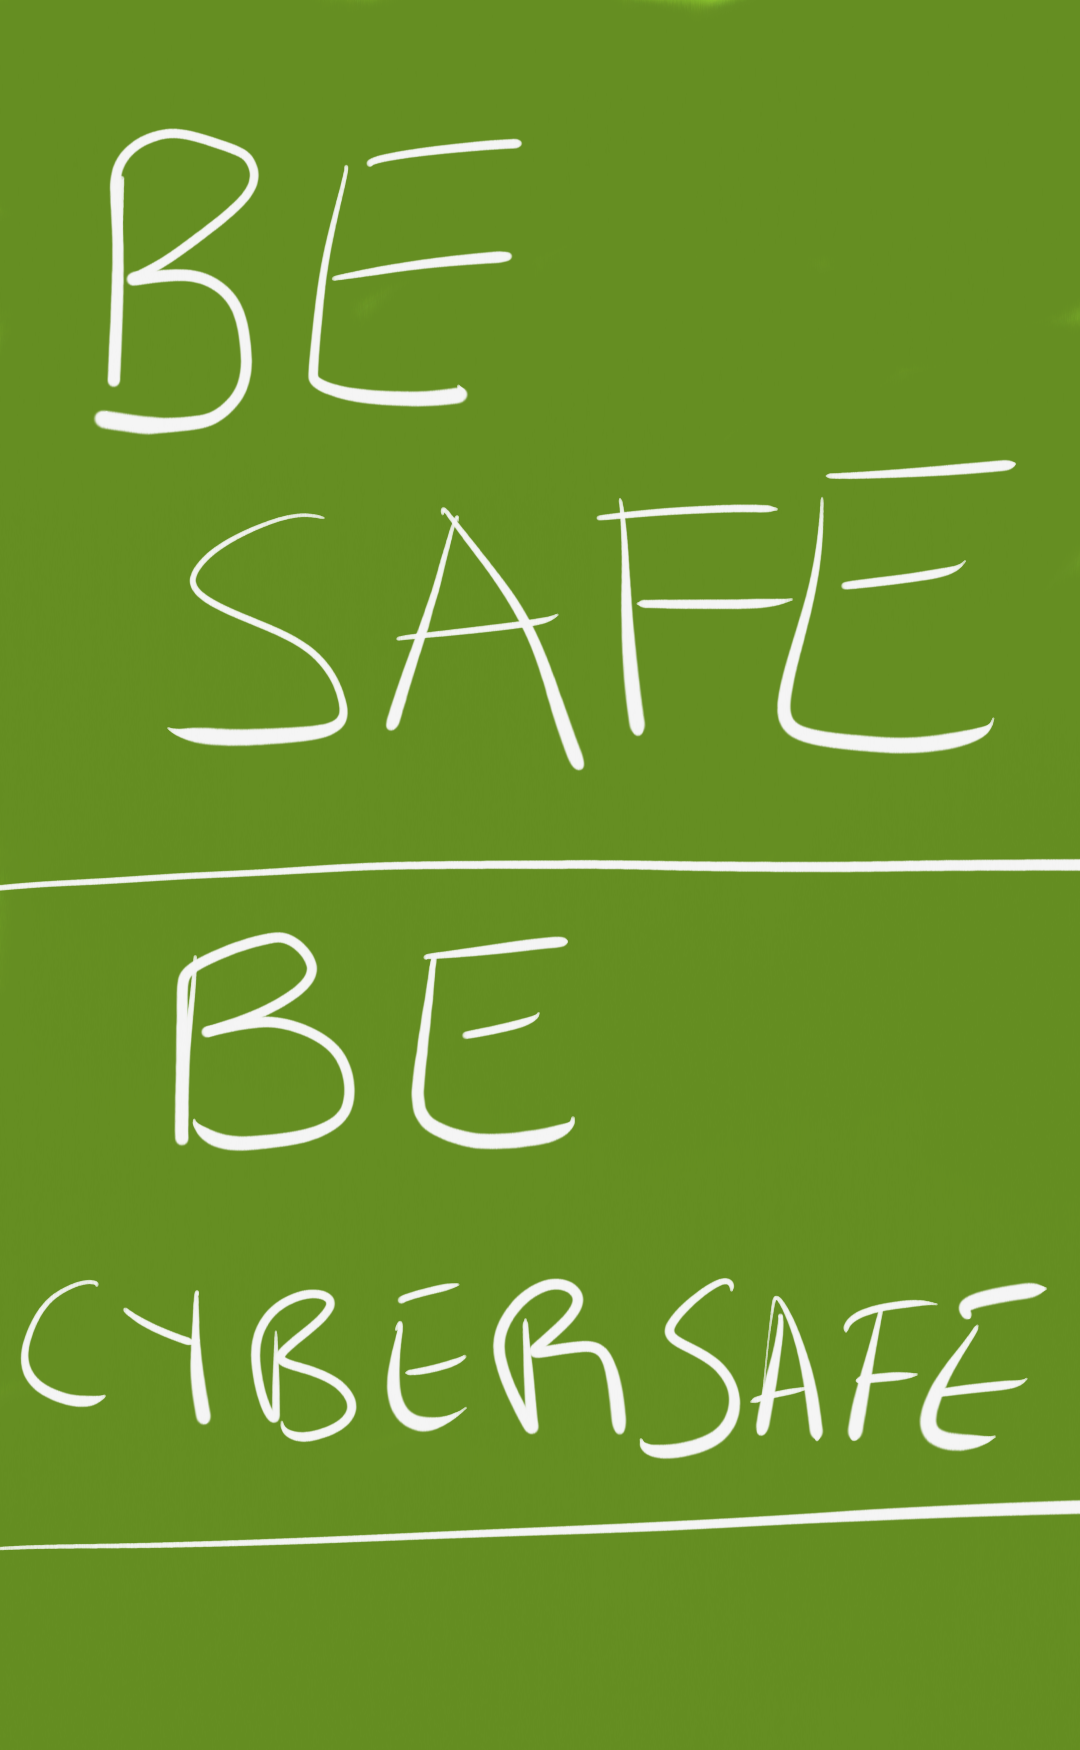 BE
SAFE
BE
CYBERSAFE